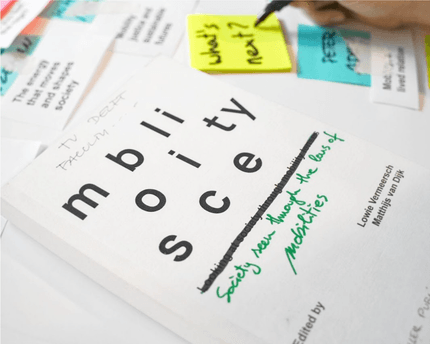 The energy
that moves
and shapes
society
Mobility
justice and
sustainable
futures
What's
next?
PETER
Mob
lived relative
TU DELFT
m b l i
o i t y
s c e
Looking at society through mobility lens
Society seen through the laws of
mobilities
Lowie Vermeersch
Matthijs van Dijk
Edited by